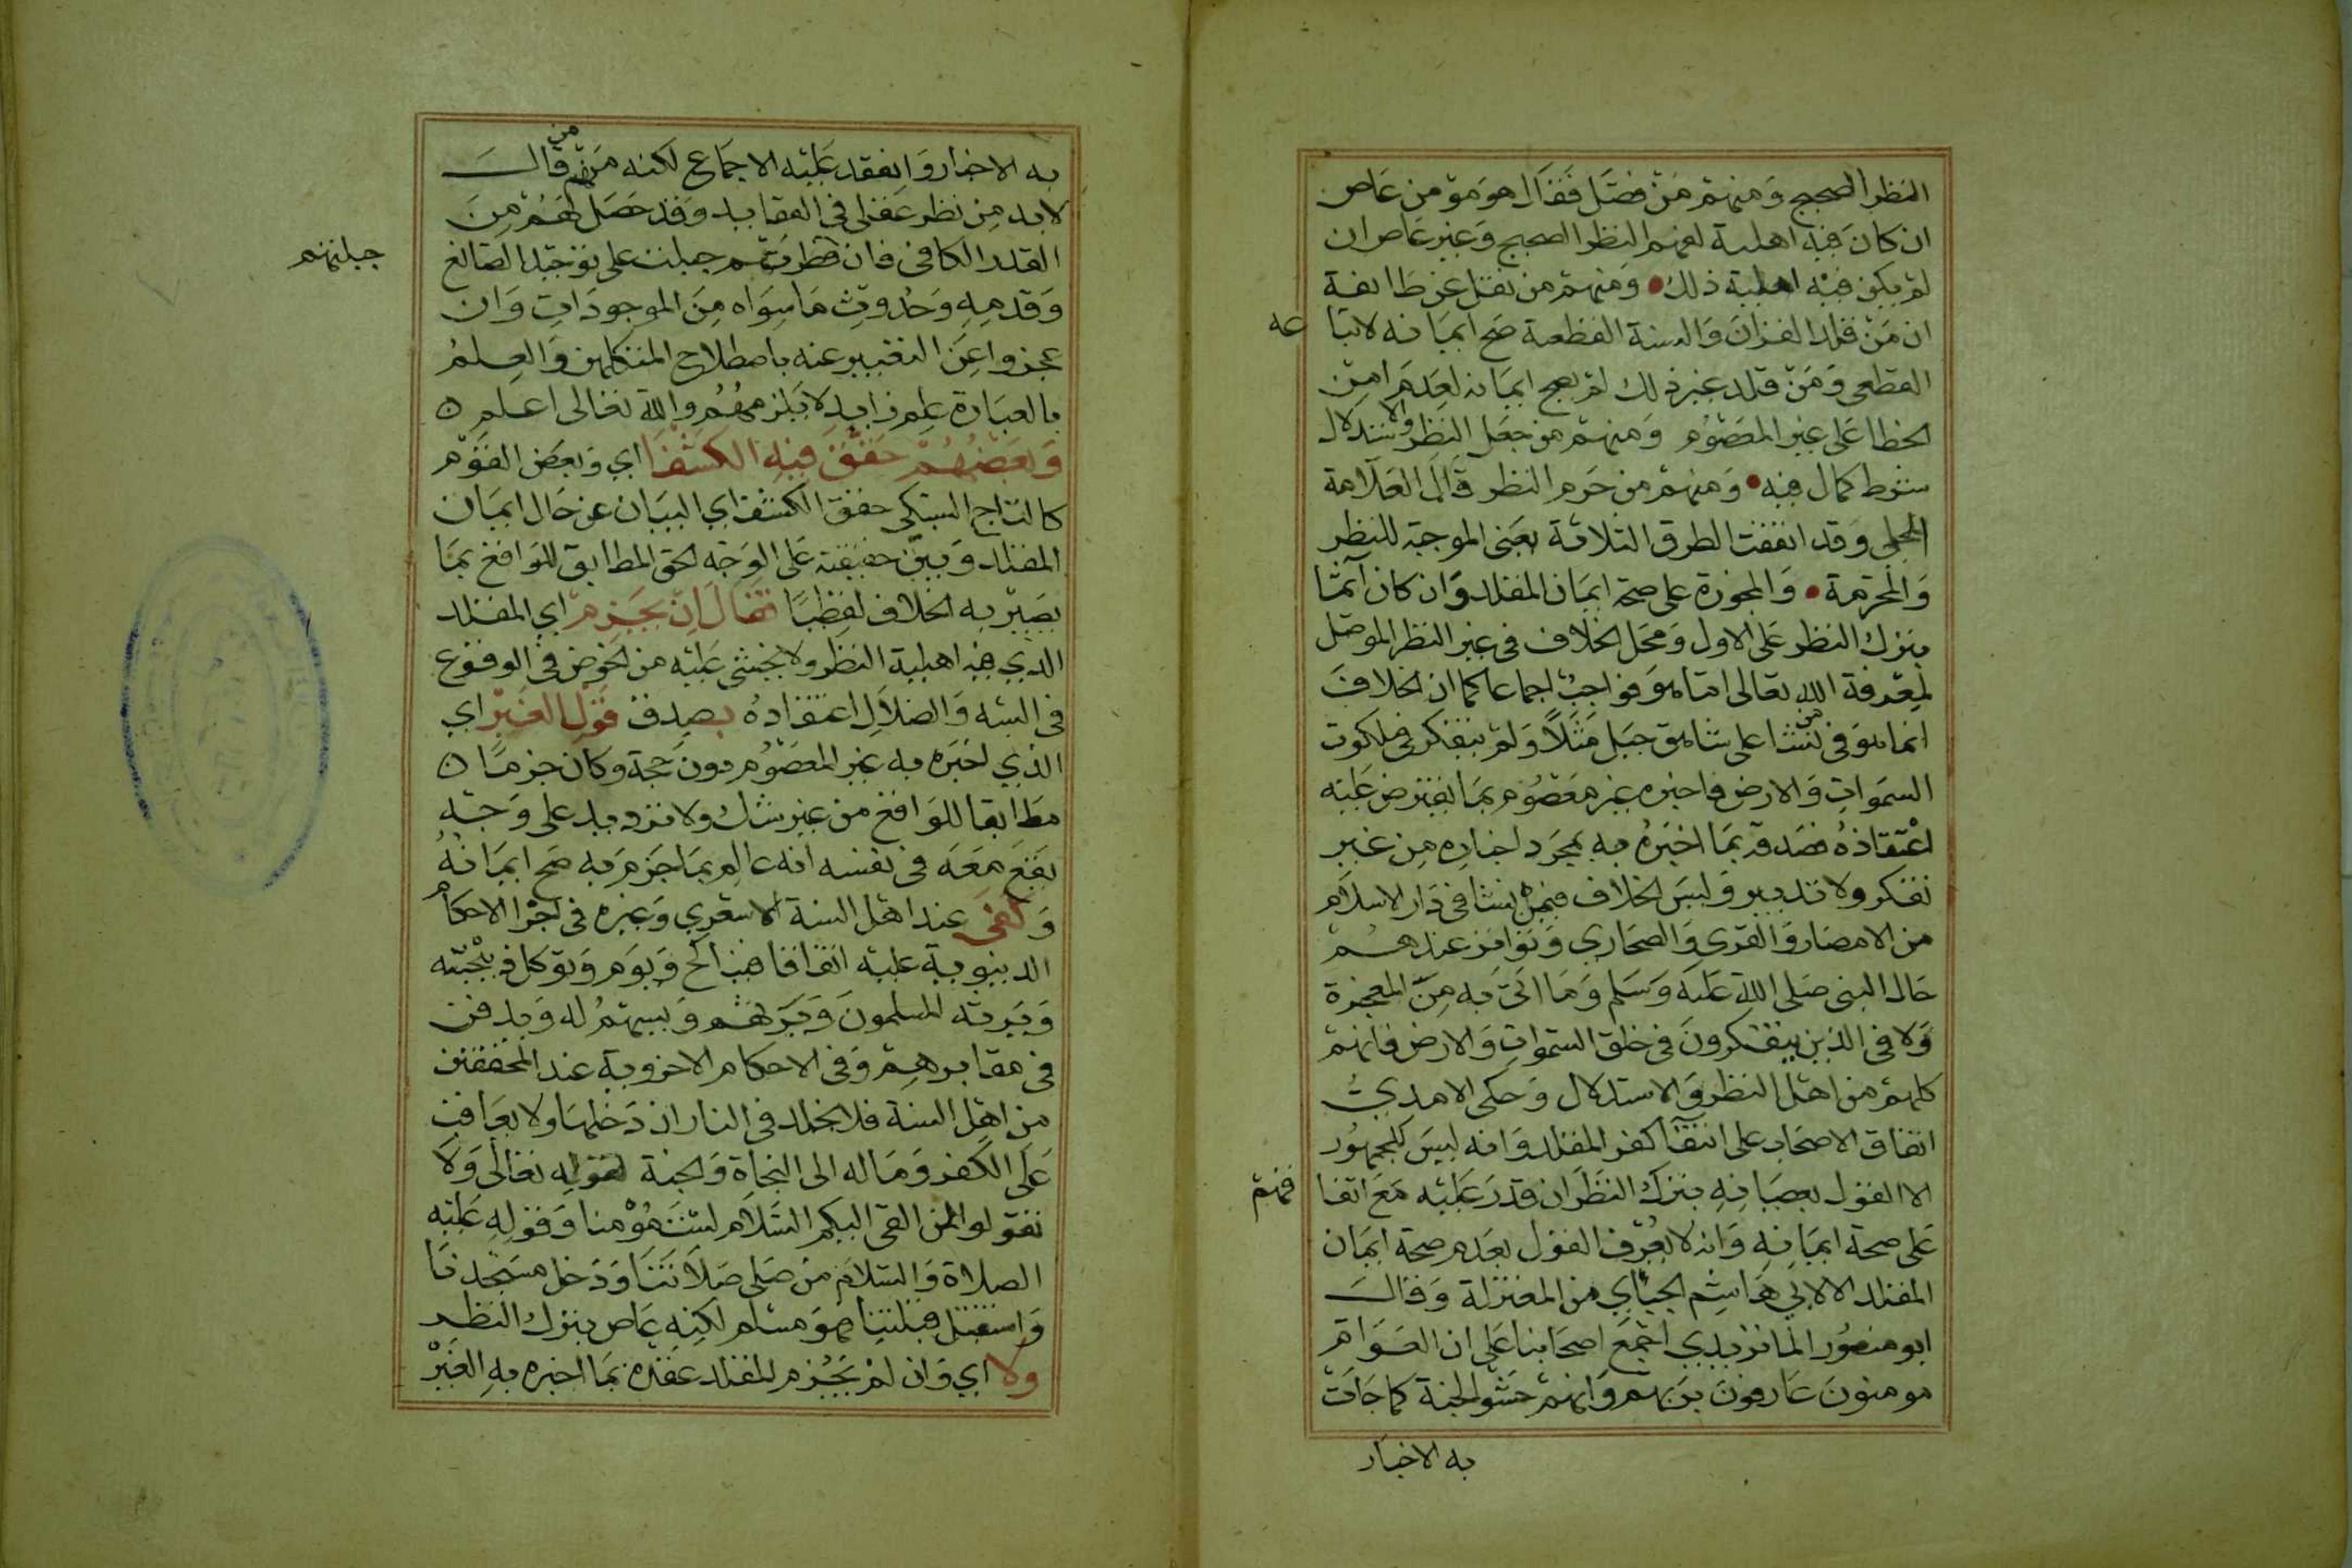 النظر الصحيح وَمنهم مَن فصَّل فَقال هو مومن عَاص
ان كانَ فيه اهلية لفهم النظر الصحيح وَغير عَاص ان
لم يكن فيْه اهلية ذلك • وَمنهم من نقل عن طايفة
ان مَن قلد القرانَ وَالسنة القطعية صَح ايمَانه لاتبا عه
القطعى وَمَن قلد غير ذلك لم يصح ايمَانه لعَدَم امن
الخطا عَلى غير المعصُوم وَمنهم من جعَل النظر والاستدلال
شرط كمال فيه • وَمنهم من حَرم النظر قال العَلّامة
المحلى وَقد اتفقت الطرق الثلاثة يعنى الموجبة للنظر
وَالمحرّمة • وَالمجوزة على صحة ايمَان المقلد وَان كان آثما
بترك النظر عَلى الاول وَمحَل الخلاف فى غير النظر الموصّل
لمعرفة الله تعالى امّا هوَ فواجبٌ اجماعا كما ان الخلافَ
انما هوَ فى من نشا على شاهق جبَل مَثَلًا وَلم يتفكر فى ملكوت
السمَواتِ وَالارض فاخبره غير معَصُوم بمَا يفترض عَليْه
اعْتقادُهُ فصَدقه بمَا اخبَرهُ به بمجرَد اخباره مِن غير
تفكر ولا تدبير وَليسَ الخلاف فيمن نشا فى دَار الاسلام
من الامصَار وَالقرى وَالصحَارى وَتواتر عندهم
حَال النبى صَلى الله عَليه وَسَلم وَمَا اتى به مِنَ المعجزة
وَلا فى الذين يتفكرونَ فى خلق السمَواتِ وَالارض فانهم
كلهم من اهل النظر وَالاستدلال وَحكى الامدىُّ
اتفاق الاصحَاب على انتفَآ كفر المقلد وَانه ليسَ للجمهُور
الا القول بعصيَانِهِ بترك النظر ان قدرَ عَليْه مَعَ اتفا قهم
عَلى صحة ايمَانِهِ وَانه لا يُعْرف القول بعَدم صحة ايمَان
المقلد الا لابى هَاشِم الجبَّاى من المعتزلة وَقالَ
ابو منصُور الماتريدى اجمَعَ اصحَابنا عَلى ان العَوَام
مومنونَ عَارفونَ بربهم وَانهم حَشو الجنة كما جَات
به الاخبار
به الاخبار وَانعقد عَليْه الاجمَاع لكنه مَن منهم من قالَ
لابد مِن نظر عَقلى فى العقايد وَقد حَصَل لهُم مِنَ
القدر الكافى فان فطرتهم جبلت على توحيد الصَانع جبلتهم
وَقدمِهِ وَحُدوثِ مَا سِوَاه مِنَ الموجودَاتِ وَان
عجزوا عِن التعبير عنه باصطلاح المتكلمين وَالعِلمُ
بالعبَارة عِلم زايد لا يَلزمهُم والله تعَالى اعلم ٥
وَبَعْضُهُم حَقَّقَ فِيهِ الكَشْفَا اي وَبعَض القوْم
كالتَاج السبكى حقق الكشف اي البيَان عن حَال ايمَان
المقلد وَبيّن حقيقته عَلى الوَجه الحق المطابق للوَاقع بمَا
يصَير به الخلاف لفظيًا فَقالَ اِنْ يَجْزِم اي المقلد
الذي فيه اهلية النظر ولا يخشى عَليْه من الخوض فى الوقوع
فى الشبه وَالضلالِ اعتقادُهُ بصِدق قَوْلِ الغَيْر اي
الذي اخبَره به غير المعصُوم دون حجة وكان جزمًا ٥
مطَابقا للوَاقع من غير شك ولا ترديد على وَجْه
يقع مَعَه فى نفسه انه عالِم بمَا جَزمَ به صح ايمَانهُ
وَكَفَى عند اهل السنة الاشعري وَغيره فى اجرَا الاحكام
الدينوية عليه اتفاقا فيناكح وَيوَم وَتوكل ذبيْحَته
وَيَرثه المسلمونَ وَيَرثهم وَيسهم له وَيدفن
فى مقابرهِم وَفى الاحكام الاخروية عند المحققين
مِن اهل السنة فلا يخلد فى النار ان دَخلهَا ولا يعَاقب
عَلى الكفر وَمَاله الى النجَاة وَالجنة لقوله تعَالى وَلا
تقولوا لمن القى اليكم السَّلام لسْتَ مُوْمنا وَقوله عَليْه
الصلاة وَالسَّلام من صَلى صَلاتنَا وَدَخل مسَجدنا
وَاستقبل قبلتنا فهوَ مسلم لكِنه عَاص بترك النظر
وَلا اي وَان لم يَجْزِم المقلد عقده بمَا اخبره به الغَيْر